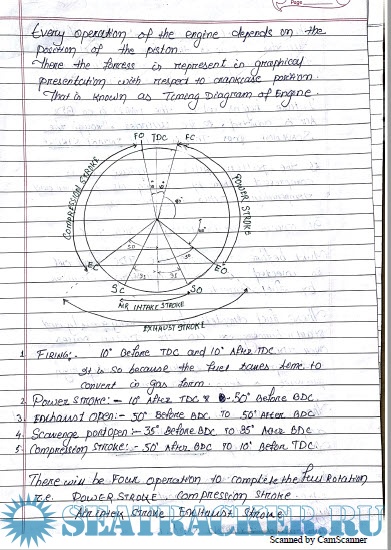 Page
Every operation of the engine depends on the
position of the piston.
There the forcess is represent in graphical
presentation with respect to crankcase position
That is known as Timing Diagram of Engine
FO TDC FC
COMPRESSION STROKE
POWER STROKE
EC
EO
SC
SO
AIR INTAKE STROKE
EXHAUST STROKE
1. FIRING:- 10° Before TDC and 10° After TDC
It is so because the fuel takes time to
convert in gas form.
2. Power stroke:- 10° After TDC & 50° Before BDC
3. Exhaust open:- 50° Before BDC TO 50° After BDC
4. Scavenge port open:- 35° Before BDC TO 35° After BDC
5. Compression stroke:- 50° After BDC TO 10° Before TDC.
There will be Four operation to complete the full Rotation
i.e. POWER STROKE, Compression stroke
Air intake stroke Exhaust stroke
SEATRACKER.RU
Scanned by CamScanner